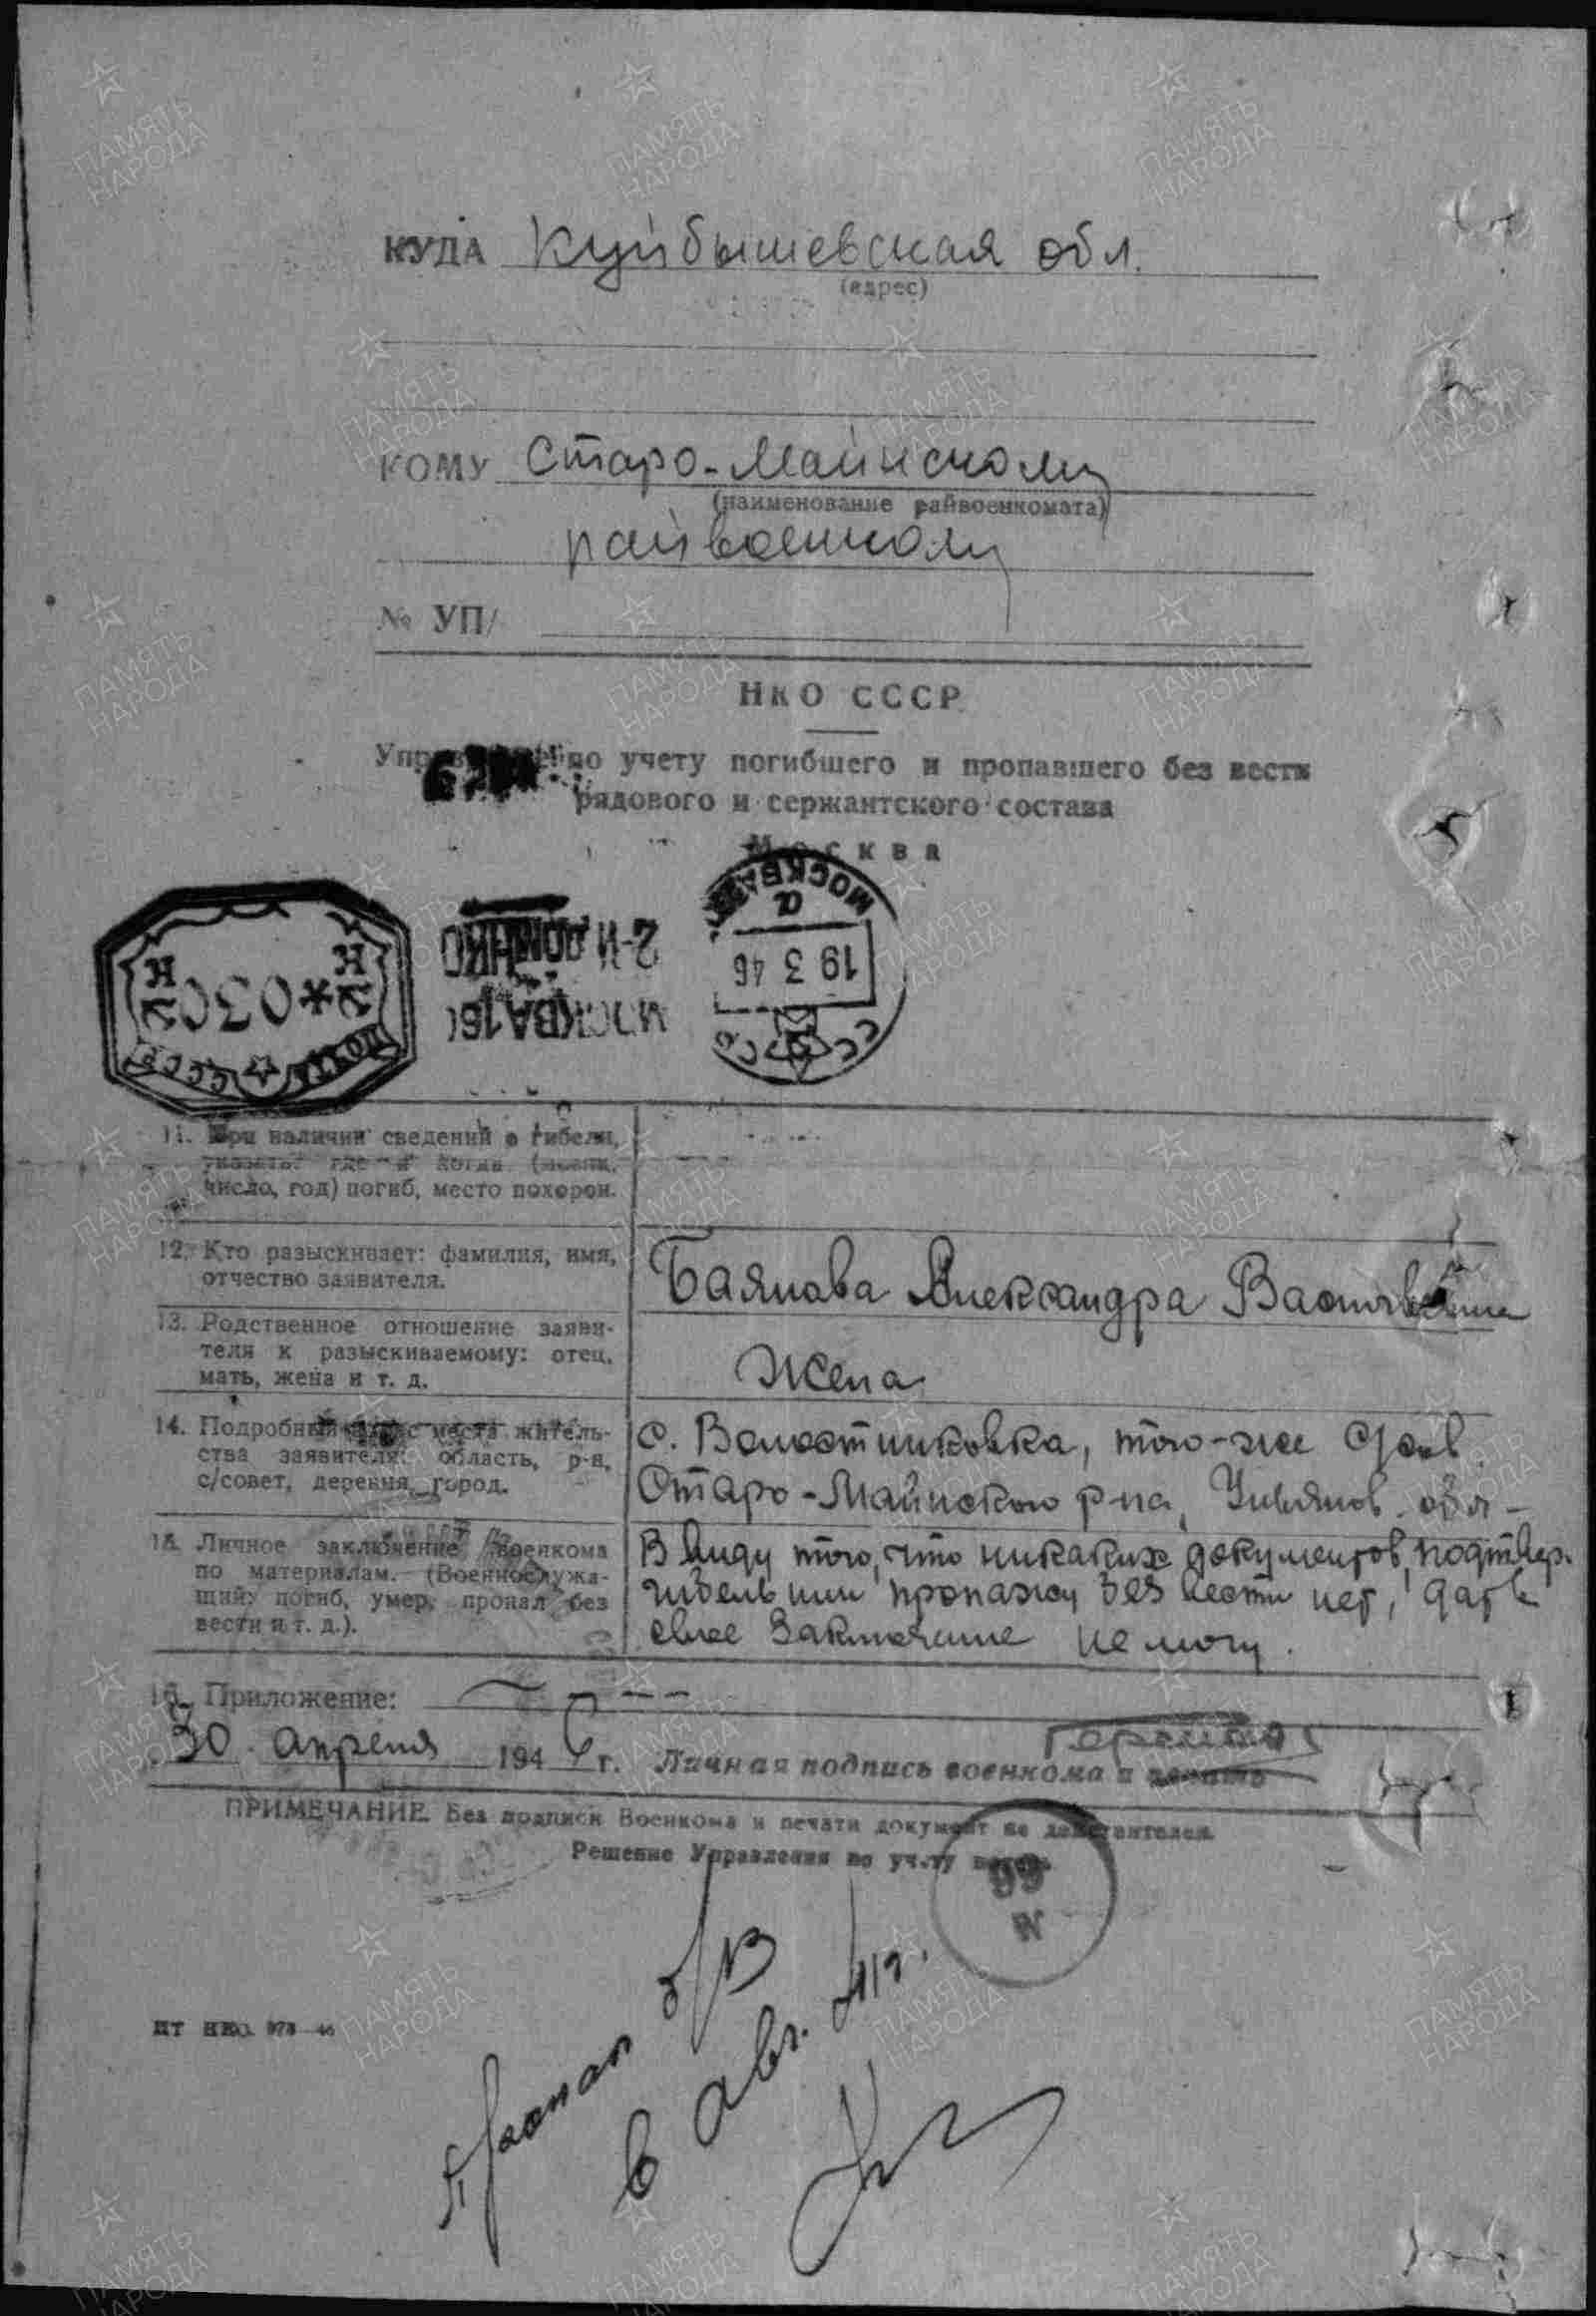 КУДА Куйбышевская обл.
(адрес)
КОМУ Старо-Майнскому
(наименование райвоенкомата)
райвоенкому
№ УП/
НКО СССР
по учету погибшего и пропавшего без вести
рядового и сержантского состава
Москва
МОСКВА
а
19 3 46
СССР
2-Й ДОМ НКО
МОСКВА
ПОЧТА СССР
11. При наличии сведений о гибели,
указать: где и когда (месяц,
число, год) погиб, место похорон.
12. Кто разыскивает: фамилия, имя,
отчество заявителя.
Баянова Александра
13. Родственное отношение заяви-
теля к разыскиваемому: отец,
мать, жена и т. д.
Жена
14. Подробный адрес места житель-
ства заявителя: область, р-н,
с/совет, деревня, город.
с. Волостниковка, того-же
Старо-Майнского р-на, Ульянов. обл-
15. Личное заключение военкома
по материалам. (Военнослужа-
щий: погиб, умер, пропал без
вести и т. д.).
В виду того, что никаких документов, подтвер.
гибель или пропажу без вести нет, дать
свое заключение не могу.
16. Приложение:
30 апреля 1946 г. Личная подпись военкома и печать
ПРИМЕЧАНИЕ. Без подписи Военкома и печати документ не действителен.
Решение Управления по учету потерь
Пропал б/в
в авг. 41 г.
ПАМЯТЬ НАРОДА